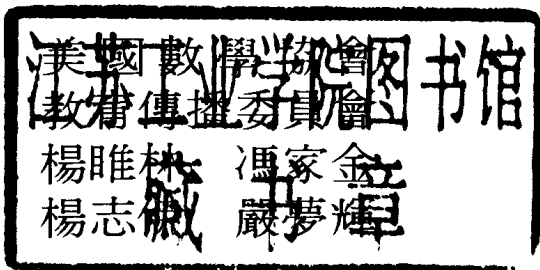 美國數學協會
教育傳播委員會
楊睢林 馮家金
楊志 嚴夢輝
江苏工业学院图书馆
藏书章